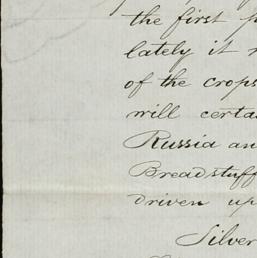 the first
lately it
of the crops
will certa
Russia an
Breadstuff
driven up
Silver